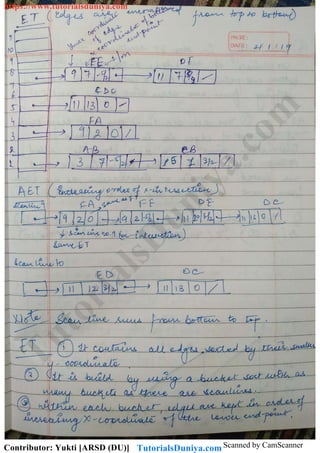 https://www.tutorialsduniya.com
ET (Edges are encountered from top to bottom)
PAGE:
DATE: 4/1/19
max coordinate of edge
x-coordinate of bottom end point
1/m
FE
DE
9 7 -5/2
11 7 5/2
CDC
11 13 0 /
FA
9 2 0 /
AB
CB
3 7 -5/2
5 7 3/2 /
AET (Increasing order of x-intersection)
Scanline 9
FA
FE
DE
DC
9 2 0
9 2 -5/2
11 13 0 /
Same ET
Scan line 10
ED
DC
11 12 3/2
11 13 0 /
Note Scan line runs from bottom to top.
ET ① It contains all edges, sorted by their smaller
y-coordinate
② It is build by using a bucket sort with as
many buckets as there are scanlines.
③ Within each bucket, edges are kept in order of
increasing x-coordinate of the lower end point.
TutorialsDuniya.com
Contributor: Yukti [ARSD (DU)] TutorialsDuniya.com Scanned by CamScanner